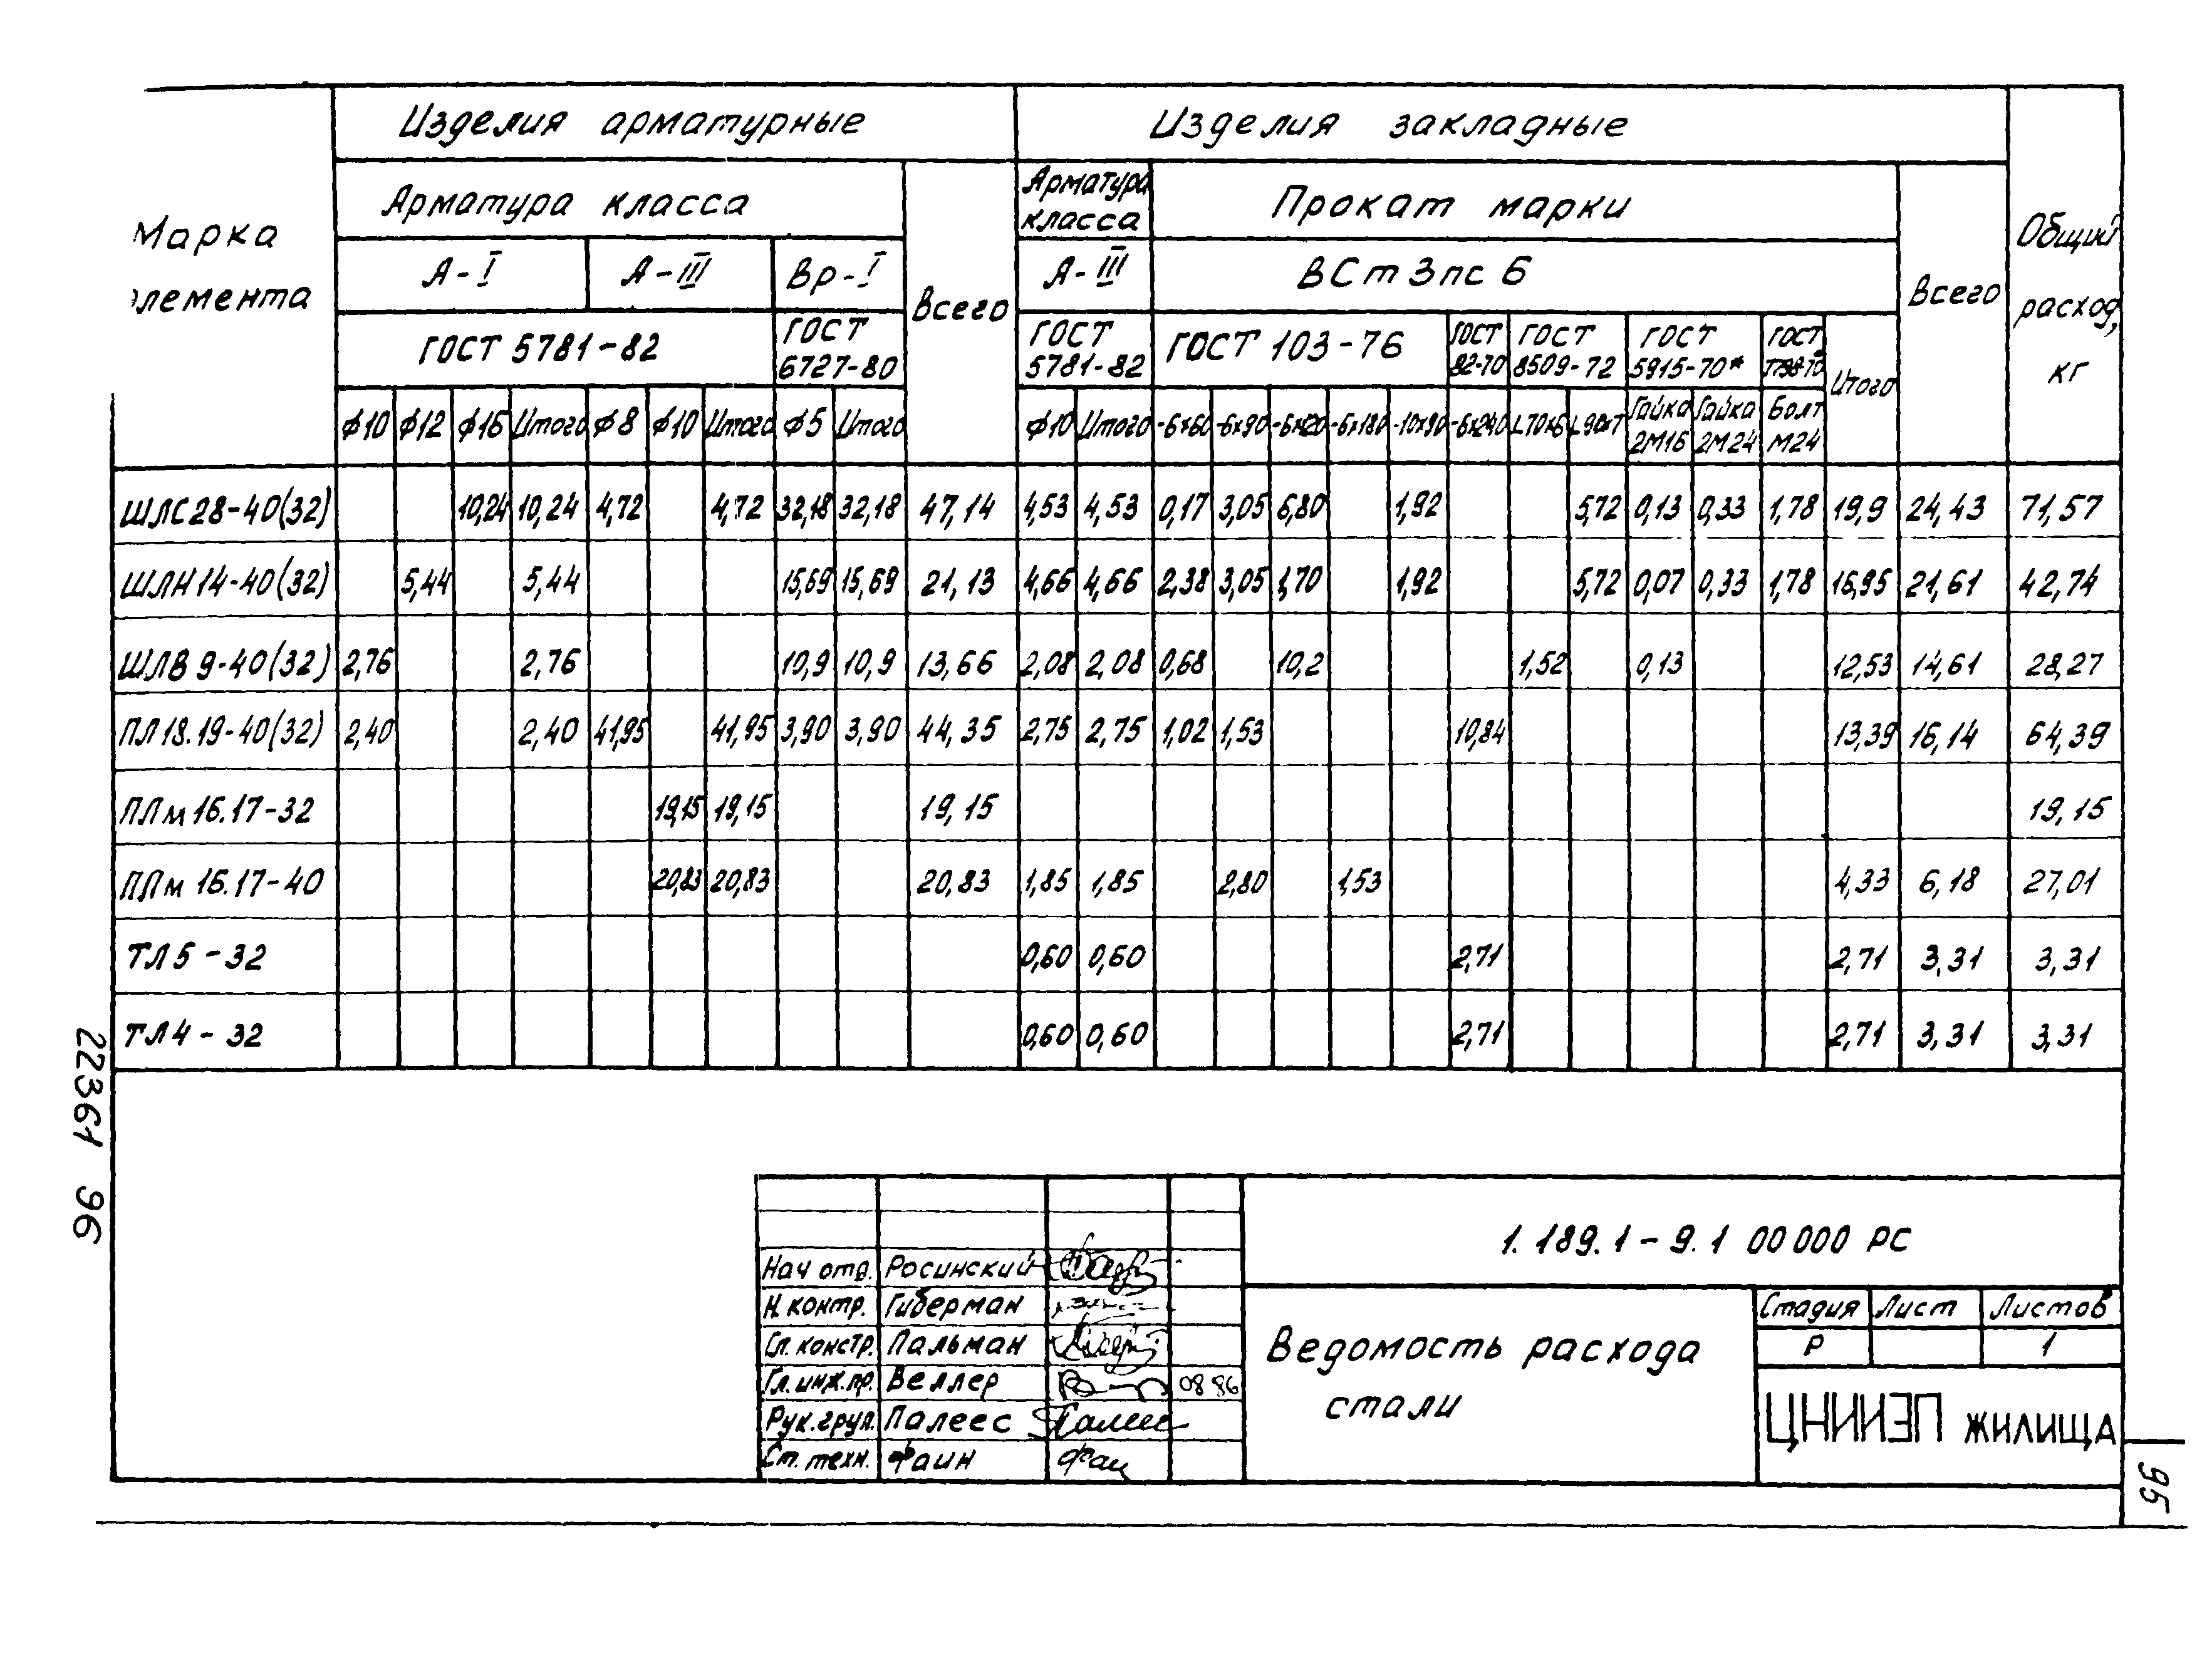 Изделия арматурные Изделия закладные
Марка элемента Арматура класса Всего Арматура класса Прокат марки Всего Общий расход, кг
А-I А-III Вр-I А-III ВСт3пс6
ГОСТ 5781-82 ГОСТ 6727-80 ГОСТ 5781-82 ГОСТ 103-76 ГОСТ 82-70 ГОСТ 8509-72 ГОСТ 5915-70* ГОСТ Итого
ф10 ф12 ф16 Итого ф8 ф10 Итого ф5 Итого ф10 Итого -6х60 -6х90 -6х120 -6х180 -10х90 -6х240 L70х6 L90х7 Гайка 2М16 Гайка 2М24 Болт М24
ШЛС28-40(32) 10,24 10,24 4,72 4,72 32,18 32,18 47,14 4,53 4,53 0,17 3,05 6,80 1,92 5,72 0,13 0,33 1,78 19,9 24,43 71,57
ШЛН14-40(32) 5,44 5,44 15,69 15,69 21,13 4,66 4,66 2,38 3,05 1,70 1,92 5,72 0,07 0,33 1,78 16,95 21,61 42,74
ШЛВ 9-40(32) 2,76 2,76 10,9 10,9 13,66 2,08 2,08 0,68 10,2 1,52 0,13 12,53 14,61 28,27
ПЛ18.19-40(32) 2,40 2,40 41,95 41,95 3,90 3,90 44,35 2,75 2,75 1,02 1,53 10,84 13,39 16,14 64,39
ПЛм16.17-32 19,15 19,15 19,15 19,15
ПЛм 16.17-40 20,83 20,83 20,83 1,85 1,85 2,80 1,53 4,33 6,18 27,01
ТЛ5-32 0,60 0,60 2,71 2,71 3,31 3,31
ТЛ4-32 0,60 0,60 2,71 2,71 3,31 3,31
22361 96
1.189.1-9.1 00 000 РС
Нач отд. Росинский
Н.контр. Гиберман
Гл. констр. Пальман
Гл.инж.пр. Веллер 08 86
Рук.груп. Палеес Палеес
Ст. техн. Фаин Фаи
Ведомость расхода
стали
Стадия Лист Листов
Р 1
ЦНИИЭП ЖИЛИЩА
95